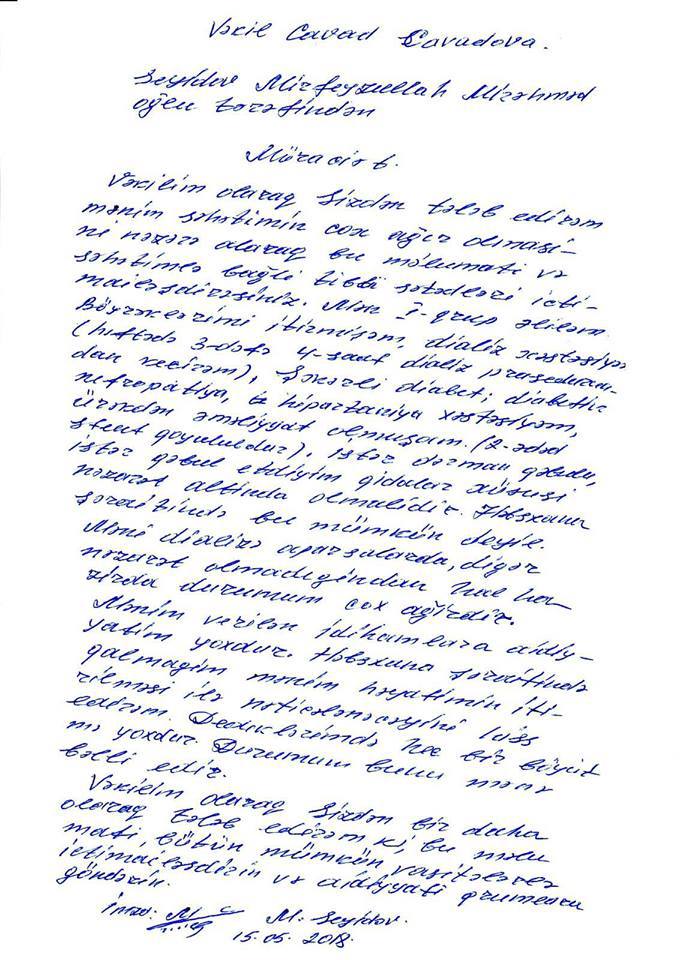 Vəkil Cavad Cavadova.
Seyidov Mirfeyzullah Mirəhməd
oğlu tərəfindən
Müraciət.
Vəkilim olaraq Sizdən tələb edirəm
mənim səhətimin çox ağır olması-
nı nəzərə alaraq bu məlumatı və
səhətimlə bağlı tibbi sənədləri icti-
mailəşdirəsiniz. Mən I-qrup əliləm.
Böyrəklərimi itirmişəm, dializ xəstəsiyəm
(həftədə 3-dəfə 4-saat dializ prasedurun-
dan keçirəm), Şəkərli diabet; diabetik
nefropatiya, hipartaniya xəstəsiyəm,
ürəkdən əməliyyat olmuşam. (2-ədəd
stent qoyuludur), istər dərman qəbulu,
istər qəbul etdiyim qidalar xüsusi
nəzarət altında olmalıdır. Həbsxana
şəraitində bu mümkün deyil.
Məni dializə aparsalarda, digər
nəzarət olmadığından hal ha-
zırda durumum çox ağırdır.
Mənim verilən idihamlara aidiy-
yatım yoxdur. Həbsxana şəraitində
qalmağım mənim həyatımın iti-
rilməsi ilə nəticələnəcəyini hiss
edirəm. Dediklərimdə heç bir böyüt
mə yoxdur. Durumum bunu mənə
bəlli edir.
Vəkilim olaraq Sizdən bir daha
olaraq tələb edirəm ki, bu məlu
matı, bütün mümkün vasitələrlə
ictimailəşdirin və aidiyyatı qrumlara
göndərin.
İmza. M. Seyidov.
15.05.2018.